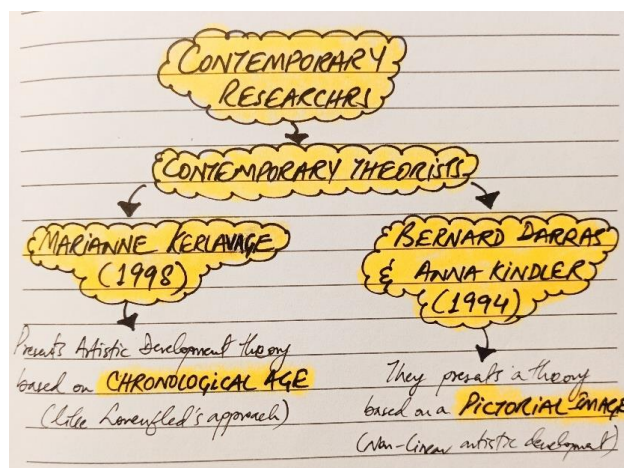 CONTEMPORARY
RESEARCHRS
CONTEMPORARY THEORISTS
MARIANNE KERLAVAGE
(1998)
Presents Artistic Development theory
based on CHRONOLOGICAL AGE
(like Lowenfled's approach)
BERNARD DARRAS
& ANNA KINDLER
(1994)
They presents a theory
based on a PICTORIAL-IMAGE
(Non-Linear artistic development)